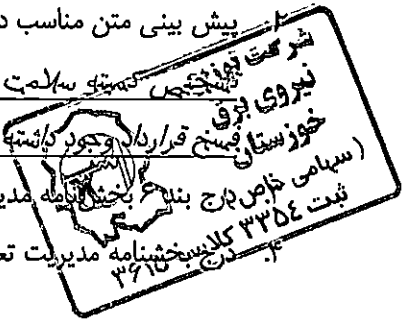 ۲. پیش بینی متن مناسب د
تشخیص کمیته سلامت
فسخ قرارداد وجود داشته
درج بند ۶ بخشنامه مدیر
۴. درج بخشنامه مدیریت تع
شرکت توزیع
نیروی برق
خوزستان
(سهامی خاص)
ثبت ۳۳۵۴ کلاسه ۳۶۱۵